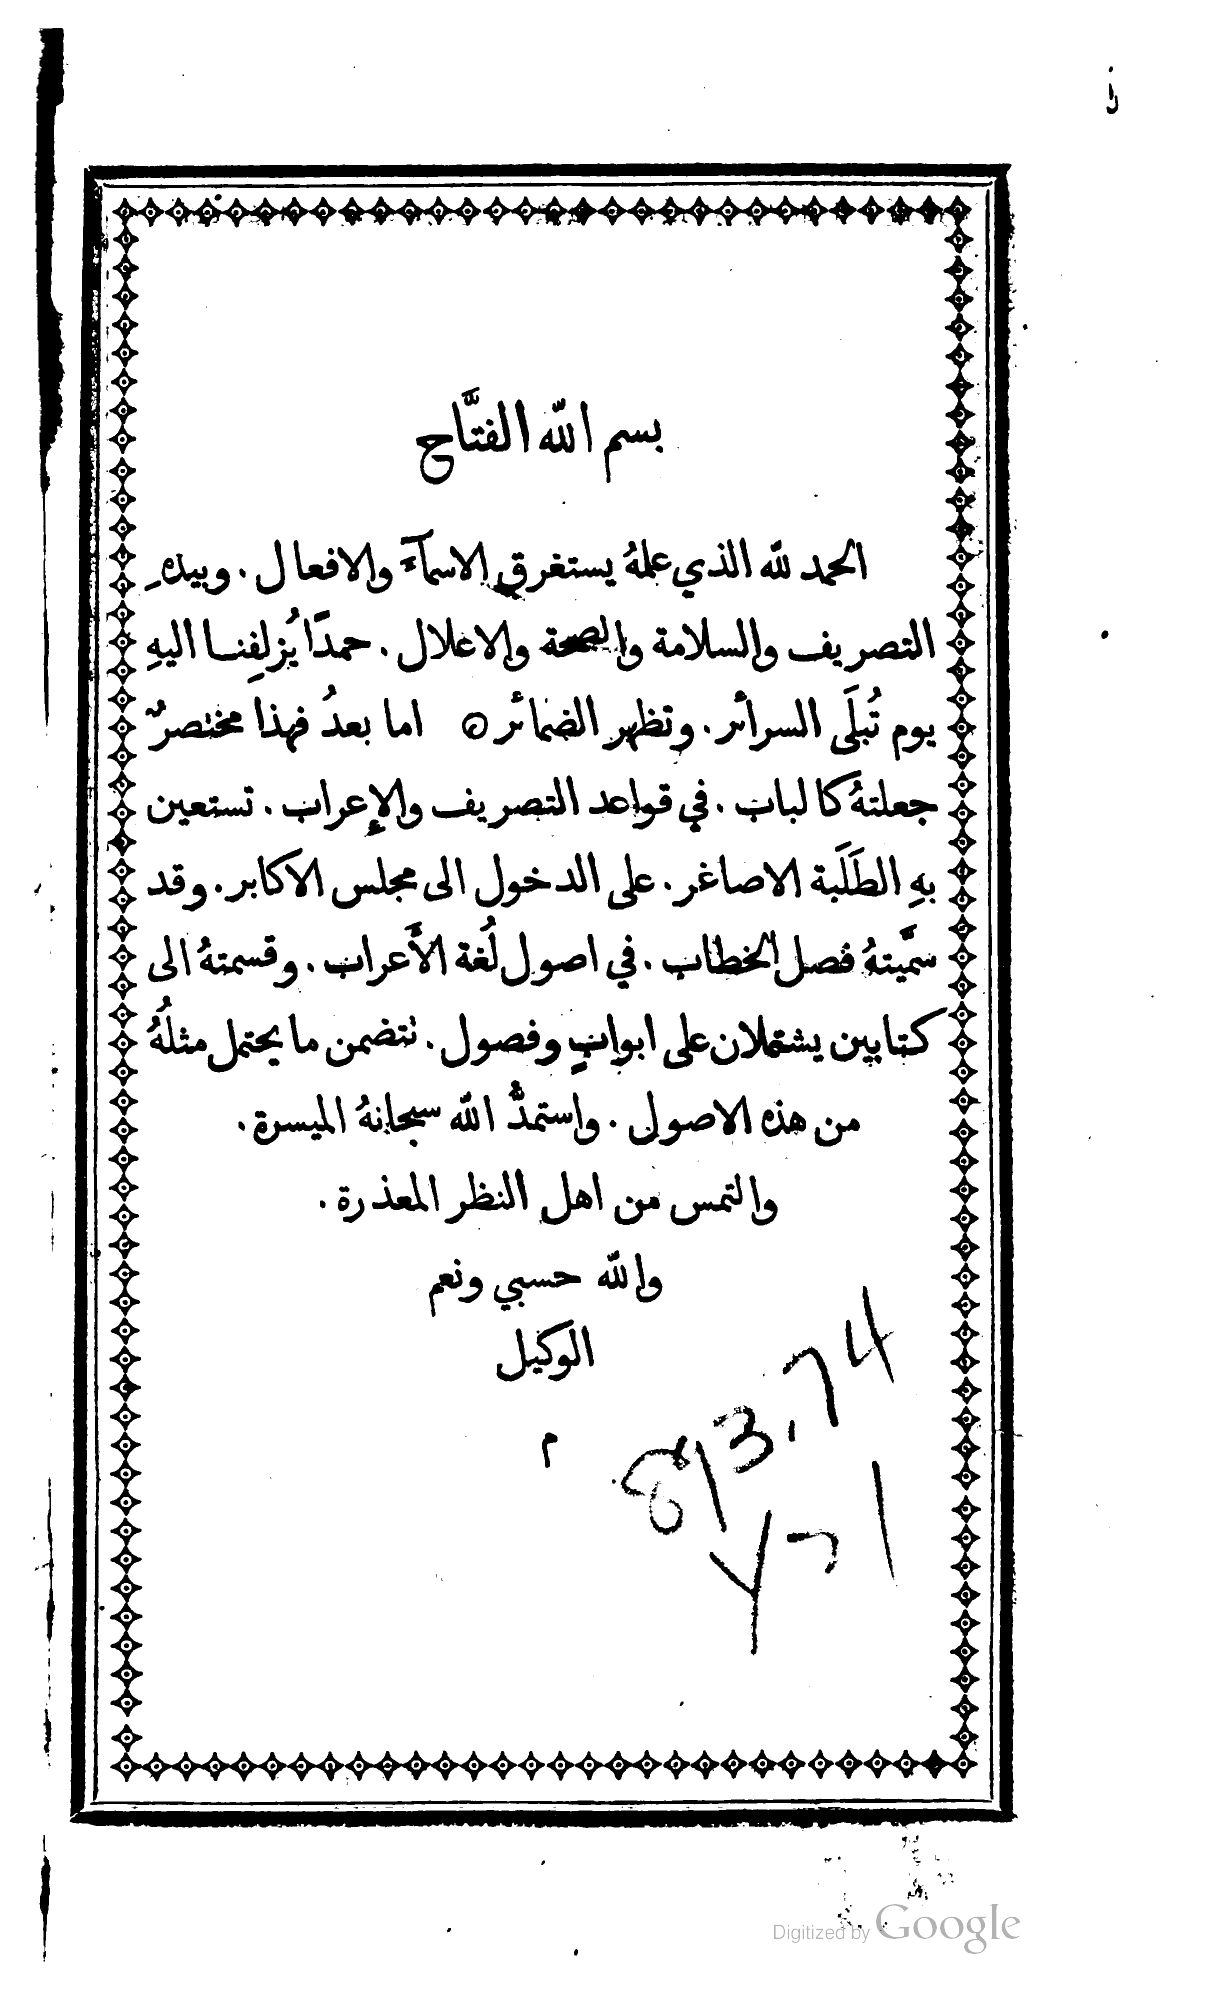 بسم الله الفتَّاح
الحمد لله الذي علمهُ يستغرق الاسمآءَ والافعال . وبيدهِ
التصريف والسلامة والصحة والاعلال . حمدًا يُزلِفنا اليهِ
يوم تُبلَى السرائر . وتظهر الضمائر ۞ اما بعدُ فهذا مختصرٌ
جعلتهُ كالباب . في قواعد التصريف والإعراب . تستعين
بهِ الطَلَبة الاصاغر . على الدخول الى مجلس الاكابر . وقد
سمَّيتهُ فصل الخطاب . في اصول لُغة الأَعراب . وقسمتهُ الى
كتابين يشتملان على ابوابٍ وفصول . تتضمن ما يحتمل مثلُهُ
من هذه الاصول . واستمدُّ الله سبحانهُ الميسرة .
والتمس من اهل النظر المعذرة .
والله حسبي ونعم
الوكيل
م
893.74
Y 1
Digitized by Google